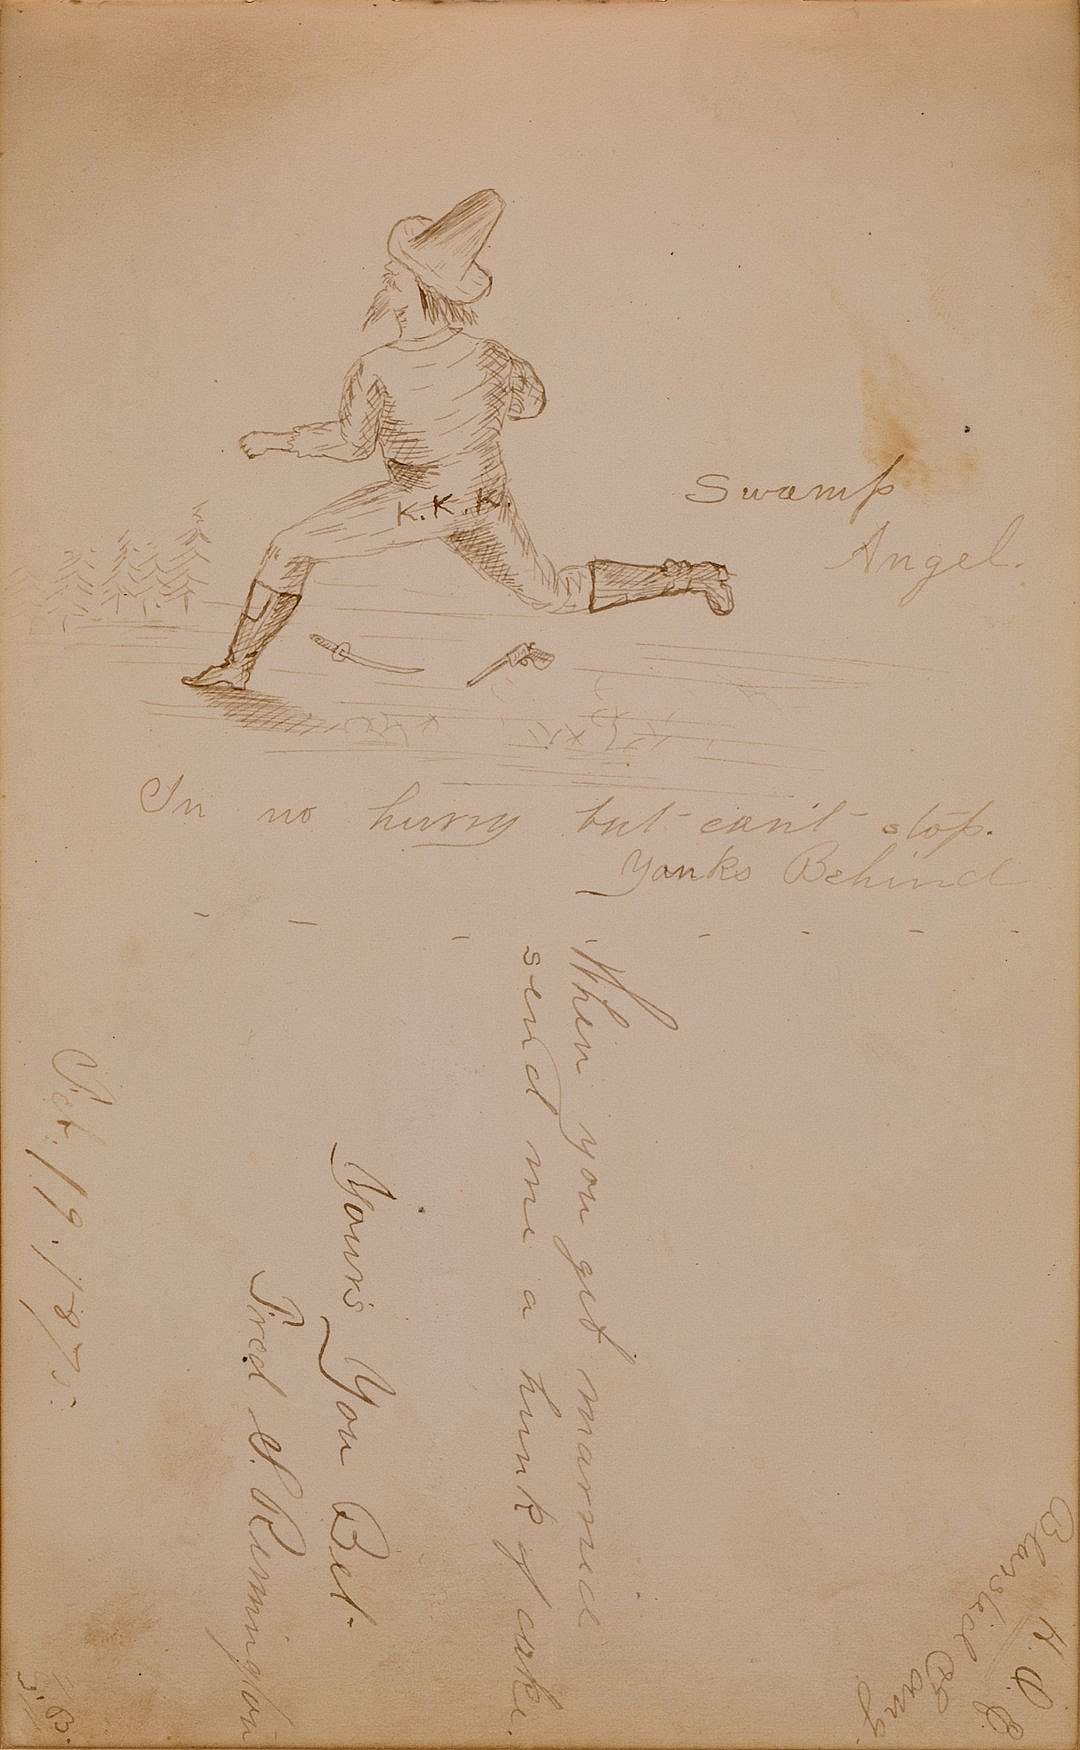 K.K.K.
Swamp
Angel.
In no hurry but can't stop.
Yanks Behind
When you get married
send me a hunk of cake.
Yours You Bet.
Fred S. Remington
Feb. 19. 187
H. P. E.
Blasted
Gang